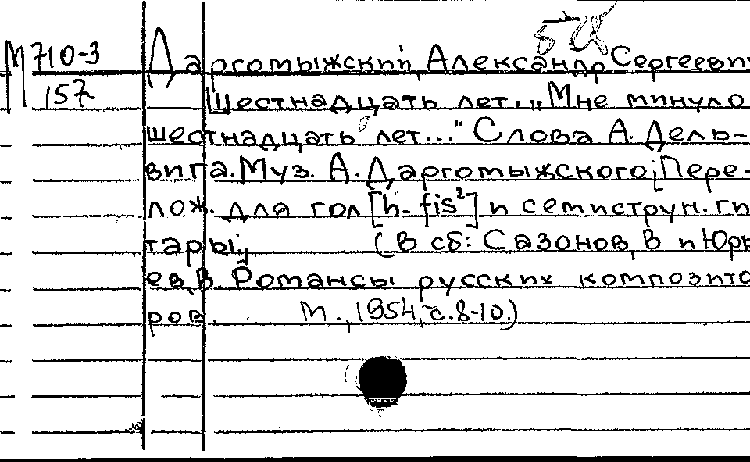 М 710-3
157
Даргомыжский, Александр Сергеевич
Шестнадцать лет. „Мне минуло
шестнадцать лет..." Слова А. Дель-
вига. Муз. А. Даргомыжского [Пере-
лож. для гол [h-fis²] и семиструн. ги
тары;         (В сб: Сазонов, В и Юрь
ев, В. Романсы русских композито
ров.         М., 1954, с. 8-10.)